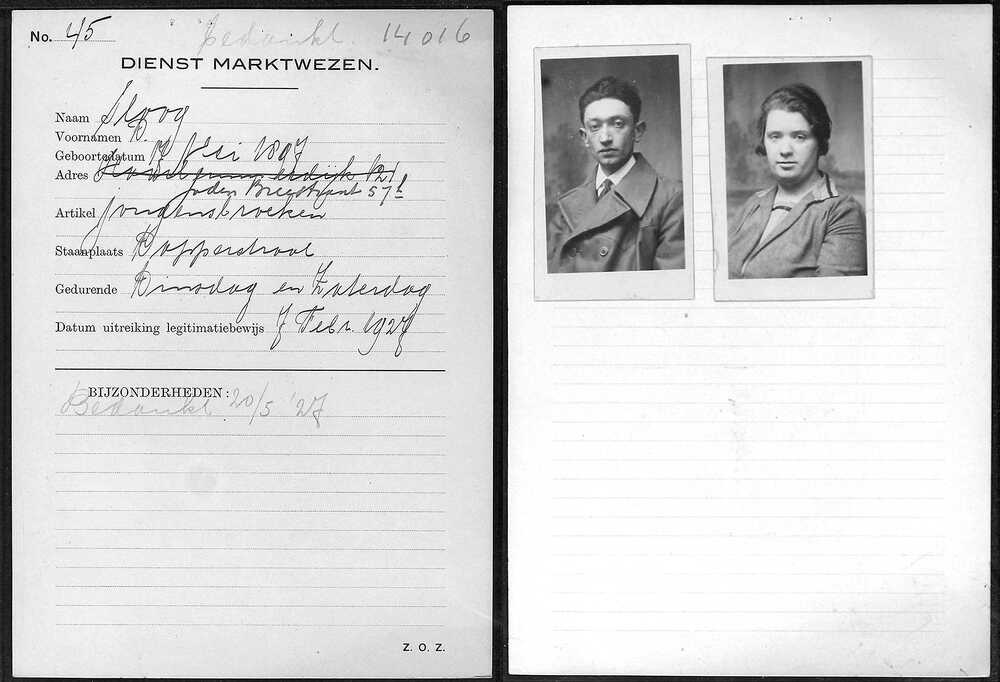 No. 45 Bedankt. 14016
DIENST MARKTWEZEN.
Naam Sloog
Voornamen B.
Geboortedatum 17 Mei 1897
Adres 121
Joden Breestraat 57 I
Artikel Jongensbroeken
Staanplaats Dapperstraat
Gedurende Dinsdag en Zaterdag
Datum uitreiking legitimatiebewijs 7 Febr. 1927
BIJZONDERHEDEN:
Bedankt 20/5 '27
Z. O. Z.